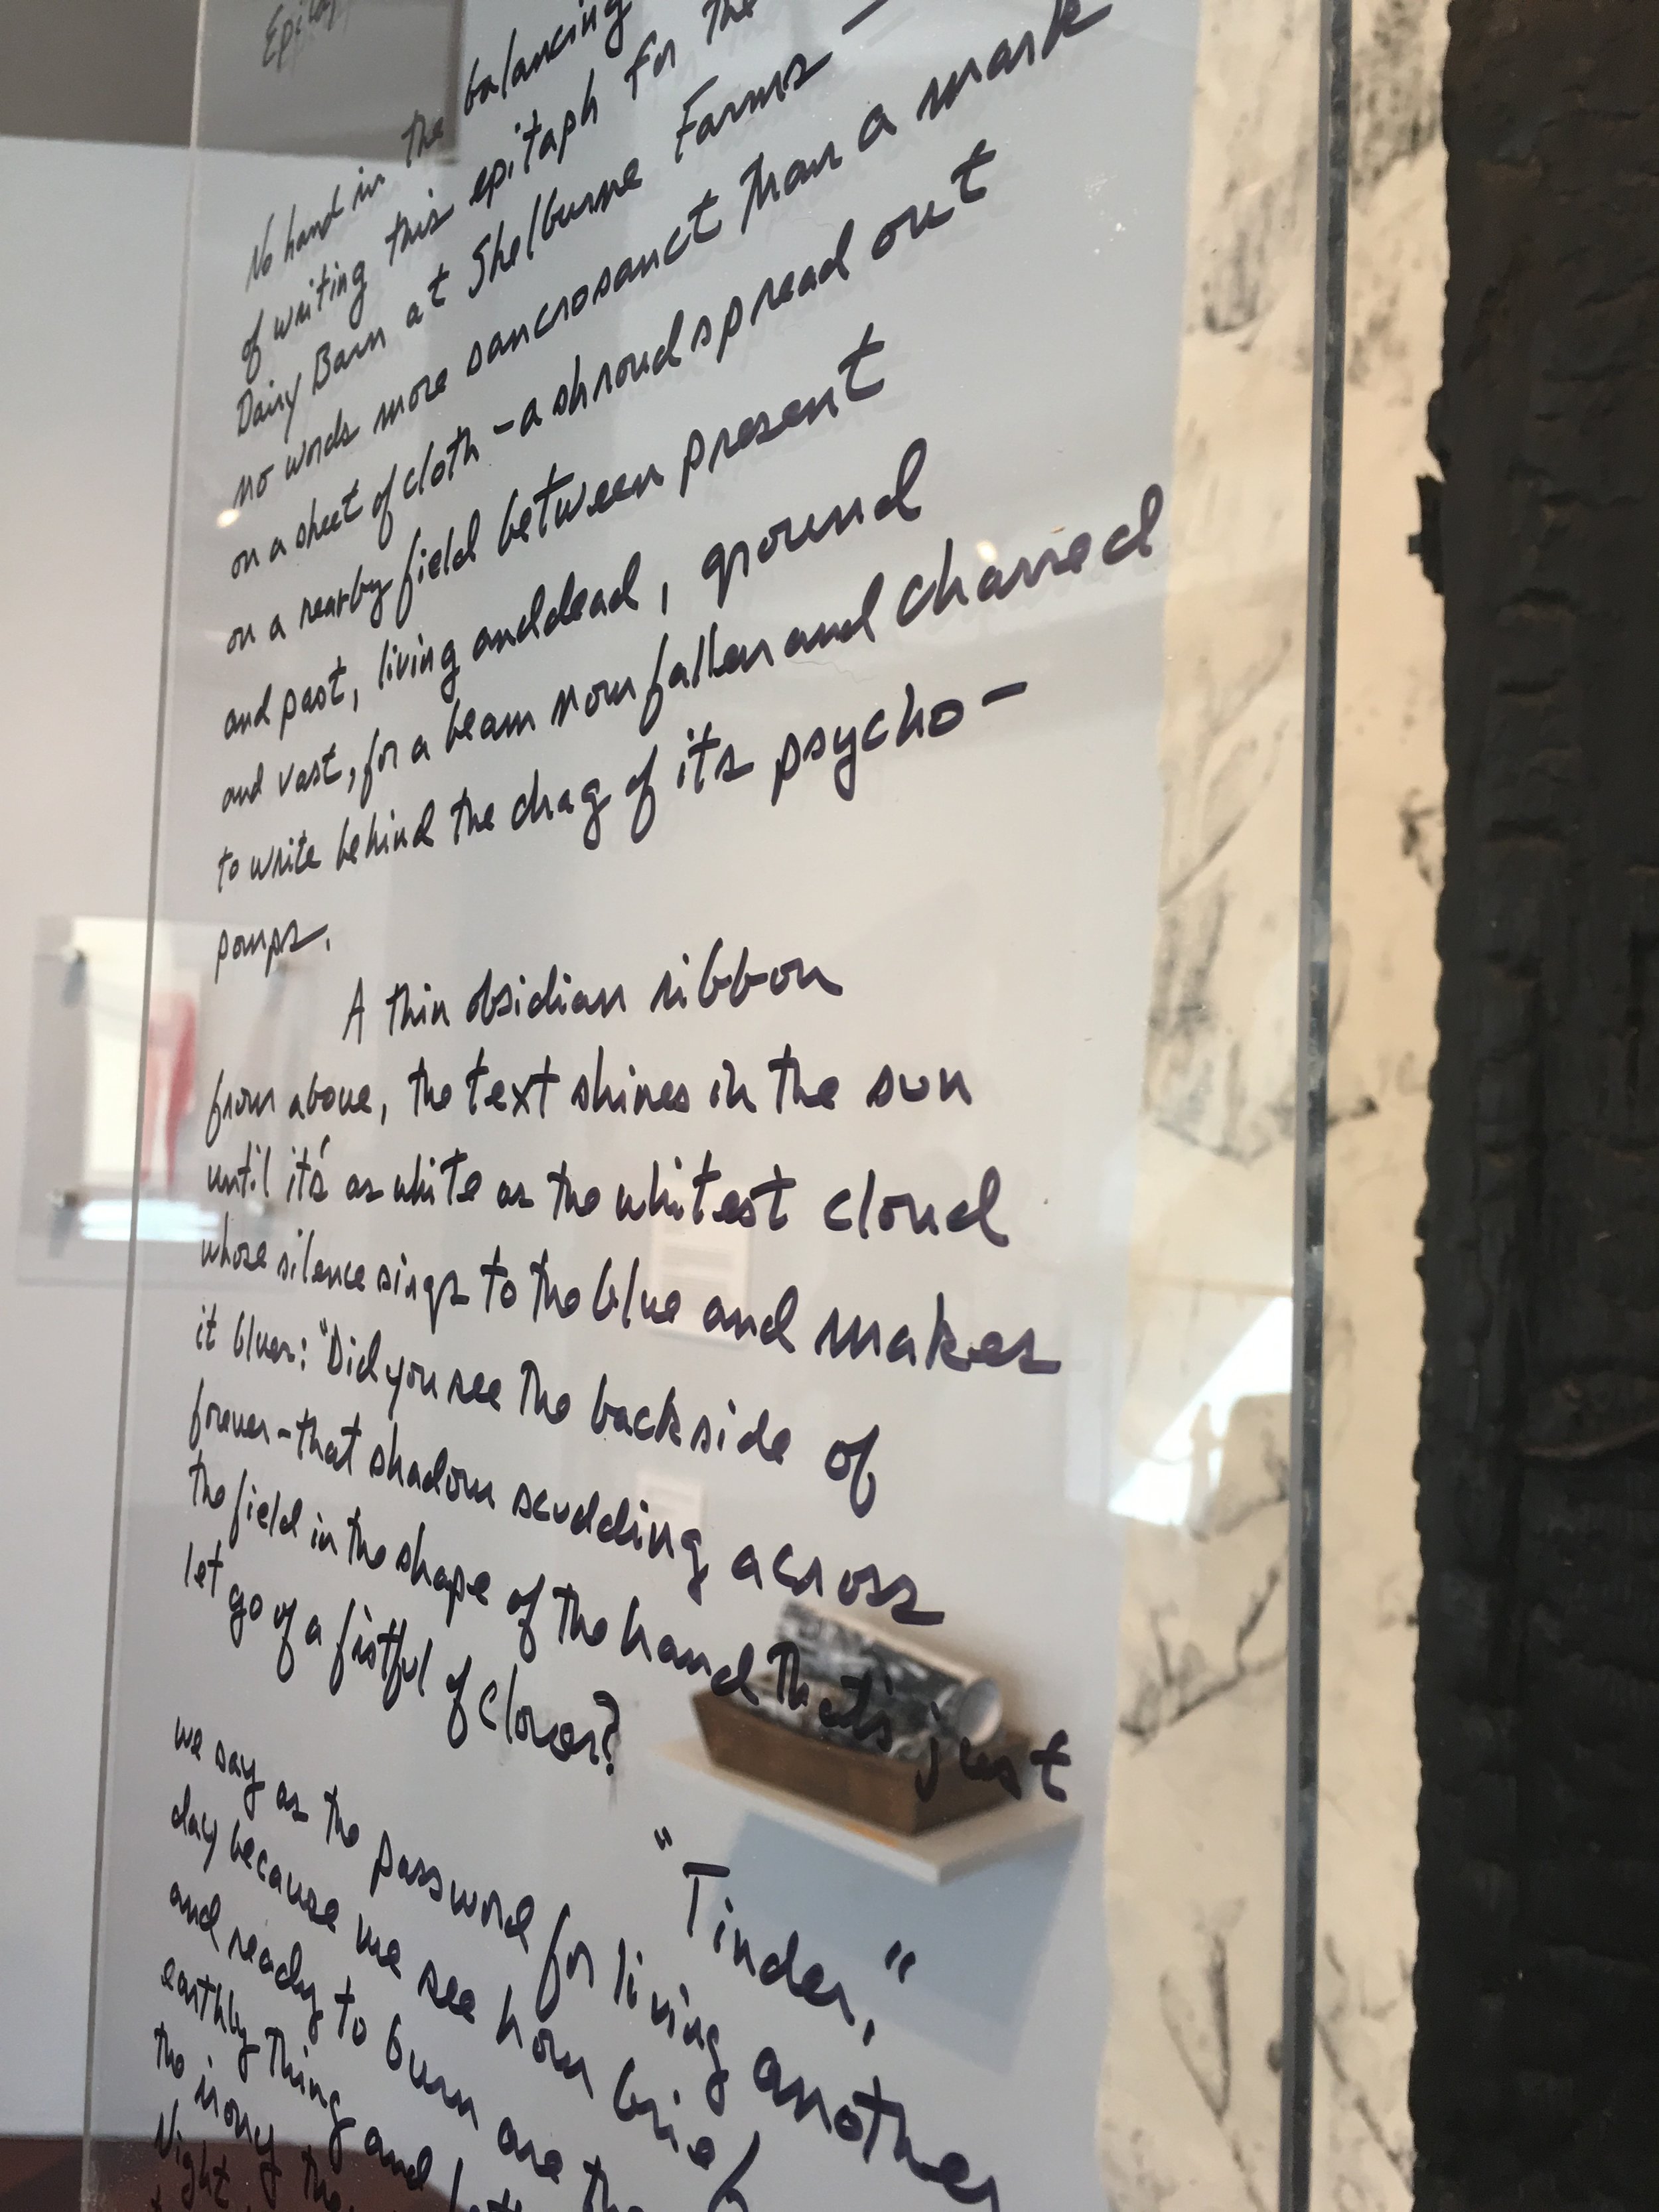 No hand in the balancing
of writing this epitaph for the
Dairy Barn at Shelburne Farms—
no words more sancrosanct than a mark
on a sheet of cloth – a shroud spread out
on a nearby field between present
and past, living and dead, ground
and vast, for a beam now fallen and charred
to write behind the drag of its psycho-
pomps.
A thin obsidian ribbon
from above, the text shines in the sun
until it's as white as the whitest cloud
whose silence sings to the blue and makes
it bluer: "Did you see the backside of
forever – that shadow scudding across
the field in the shape of the hand that's just
let go of a fistful of clover?
"Tinder,"
we say as the password for living another
day because we see how brief
and ready to burn are the
earthly thing and
the irony the
Night